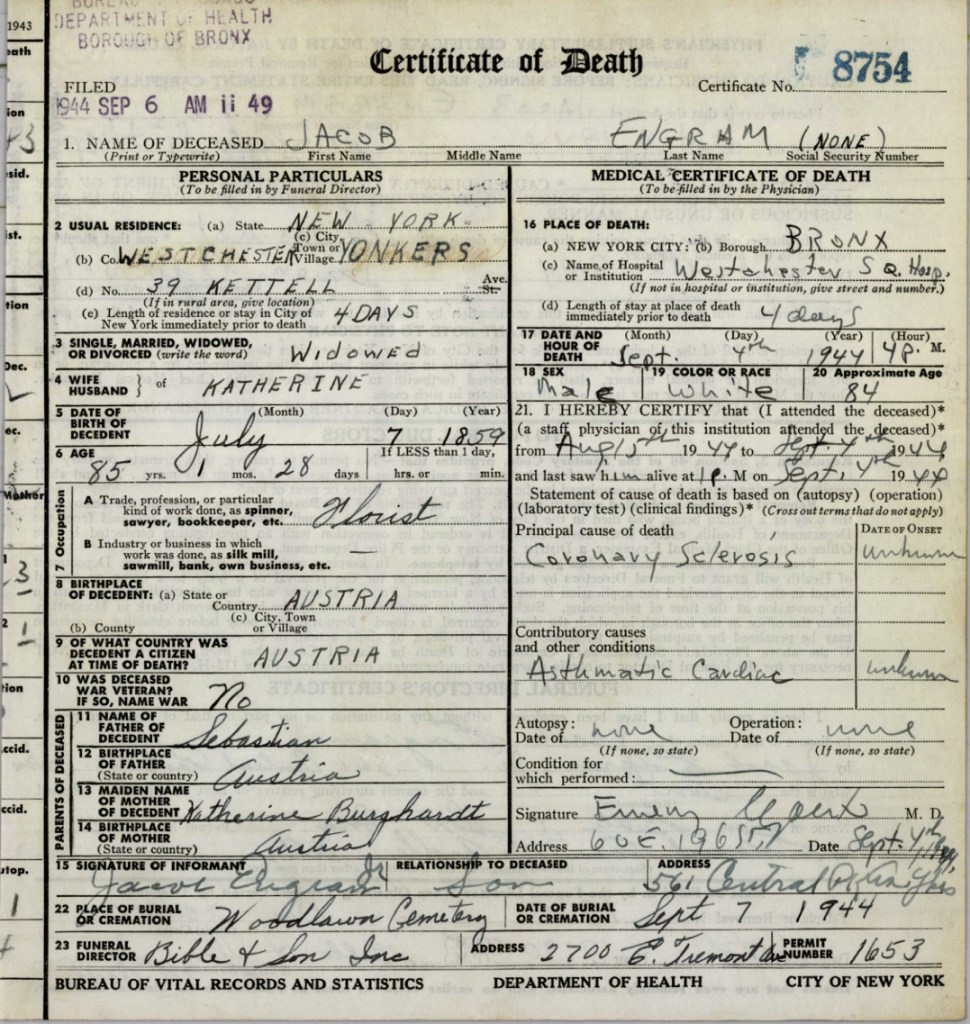 BUREAU
DEPARTMENT OF HEALTH
BOROUGH OF BRONX
Certificate of Death
FILED
1944 SEP 6 AM 11 49
Certificate No. 8754
1. NAME OF DECEASED JACOB ENGRAM (NONE)
(Print or Typewrite) First Name Middle Name Last Name Social Security Number
PERSONAL PARTICULARS
(To be filled in by Funeral Director)
2 USUAL RESIDENCE: (a) State NEW YORK
(b) Co. WESTCHESTER (c) City, Town or Village YONKERS
(d) No. 39 KETTELL Ave. St.
(If in rural area, give location)
(e) Length of residence or stay in City of
New York immediately prior to death 4 DAYS
3 SINGLE, MARRIED, WIDOWED,
OR DIVORCED (write the word) WIDOWED
4 WIFE
HUSBAND } of KATHERINE
5 DATE OF
BIRTH OF
DECEDENT (Month) (Day) (Year)
July 7 1859
6 AGE If LESS than 1 day,
85 yrs. 1 mos. 28 days hrs. or min.
7 Occupation
A Trade, profession, or particular
kind of work done, as spinner,
sawyer, bookkeeper, etc. Florist
B Industry or business in which
work was done, as silk mill,
sawmill, bank, own business, etc. —
8 BIRTHPLACE
OF DECEDENT: (a) State or
Country AUSTRIA
(b) County (c) City, Town
or Village
9 OF WHAT COUNTRY WAS
DECEDENT A CITIZEN
AT TIME OF DEATH? AUSTRIA
10 WAS DECEASED
WAR VETERAN?
IF SO, NAME WAR No
PARENTS OF DECEASED
11 NAME OF
FATHER OF
DECEDENT Sebastian
12 BIRTHPLACE
OF FATHER
(State or country) Austria
13 MAIDEN NAME
OF MOTHER
OF DECEDENT Katherine Burghardt
14 BIRTHPLACE
OF MOTHER
(State or country) Austria
MEDICAL CERTIFICATE OF DEATH
(To be filled in by the Physician)
16 PLACE OF DEATH:
(a) NEW YORK CITY: (b) Borough BRONX
(c) Name of Hospital
or Institution Westchester Sq. Hosp.
(If not in hospital or institution, give street and number.)
(d) Length of stay at place of death
immediately prior to death 4 days
17 DATE AND
HOUR OF
DEATH (Month) (Day) (Year) (Hour)
Sept. 4th 1944 4 P. M.
18 SEX 19 COLOR OR RACE 20 Approximate Age
Male White 84
21. I HEREBY CERTIFY that (I attended the deceased)*
(a staff physician of this institution attended the deceased)*
from 19 44 to Sept. 4th 1944
and last saw him alive at 1 P. M on Sept. 4th 19 44
Statement of cause of death is based on (autopsy) (operation)
(laboratory test) (clinical findings)* (Cross out terms that do not apply)
Principal cause of death DATE OF ONSET
Coronary Sclerosis unknown
Contributory causes
and other conditions
Asthmatic Cardiac unknown
Autopsy: Operation:
Date of none Date of none
(If none, so state) (If none, so state)
Condition for
which performed: —
Signature M. D.
Address 60 E. 196 St. Date Sept. 4th, 1944
15 SIGNATURE OF INFORMANT RELATIONSHIP TO DECEASED ADDRESS
Jacob Engram Jr Son 561 Central
22 PLACE OF BURIAL
OR CREMATION Woodlawn Cemetery DATE OF BURIAL
OR CREMATION Sept 7 1944
23 FUNERAL
DIRECTOR Bible & Son Inc ADDRESS 2700 E. Tremont Ave PERMIT
NUMBER 1653
BUREAU OF VITAL RECORDS AND STATISTICS DEPARTMENT OF HEALTH CITY OF NEW YORK